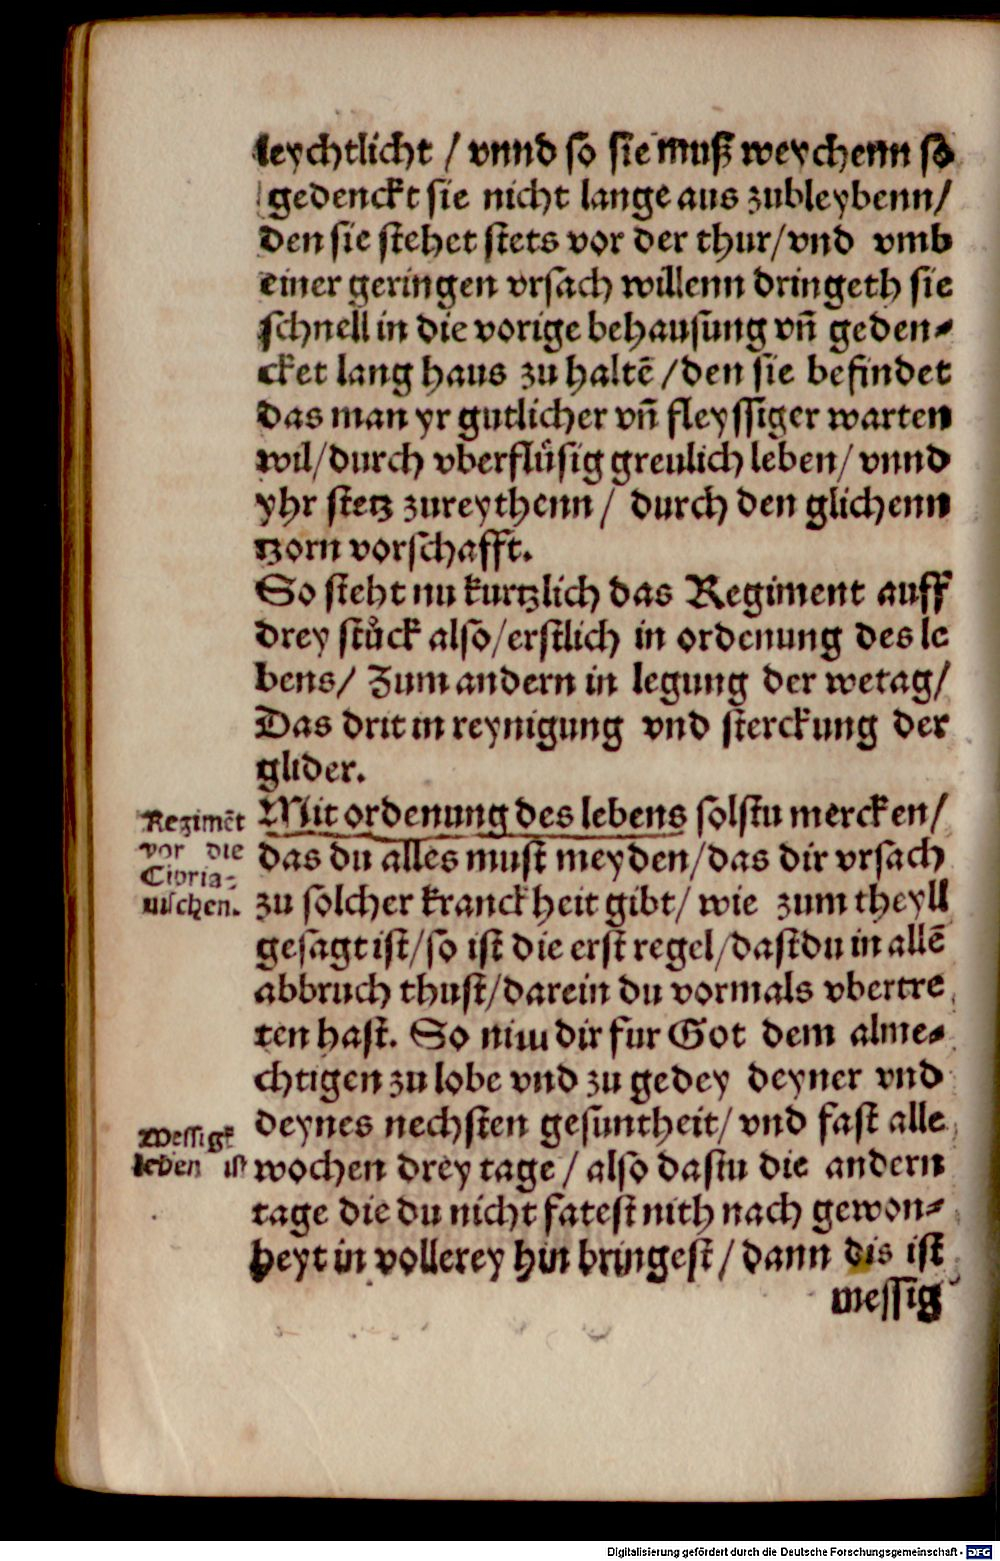 leychtlicht / vnnd so sie muß weychenn so
gedenckt sie nicht lange aus zubleybenn/
den sie stehet stets vor der thur/vnd vmb
einer geringen vrsach willenn dringeth sie
schnell in die vorige behausung vn̄ geden⸗
cket lang haus zu haltē /den sie befindet
das man yr gutlicher vn̄ fleyssiger warten
wil/durch vberflůsig greulich leben/ vnnd
yhr stetz zureythenn / durch den glichenn
tzorn vorschafft.
So steht nu kurtzlich das Regiment auff
drey stůck also/erstlich in ordenung des le
bens/ Zum andern in legung der wetag/
Das drit in reynigung vnd sterckung der
glider.
Mit ordenung des lebens solstu mercken/
das du alles must meyden/das dir vrsach
zu solcher kranckheit gibt/ wie zum theyll
gesagt ist/so ist die erst regel/dastdu in allē
abbruch thust/darein du vormals vbertre
ten hast. So nim dir fur Got dem alme⸗
chtigen zu lobe vnd zu gedey deyner vnd
deynes nechsten gesuntheit/ vnd fast alle
wochen drey tage / also dastu die andern
tage die du nicht fatest nith nach gewon⸗
heyt in vollerey hin bringest / dann dis ist
messig
Regimēt
vor die
Cipria⸗
nischen.
Messigk
leben ist
Digitalisierung gefördert durch die Deutsche Forschungsgemeinschaft - DFG